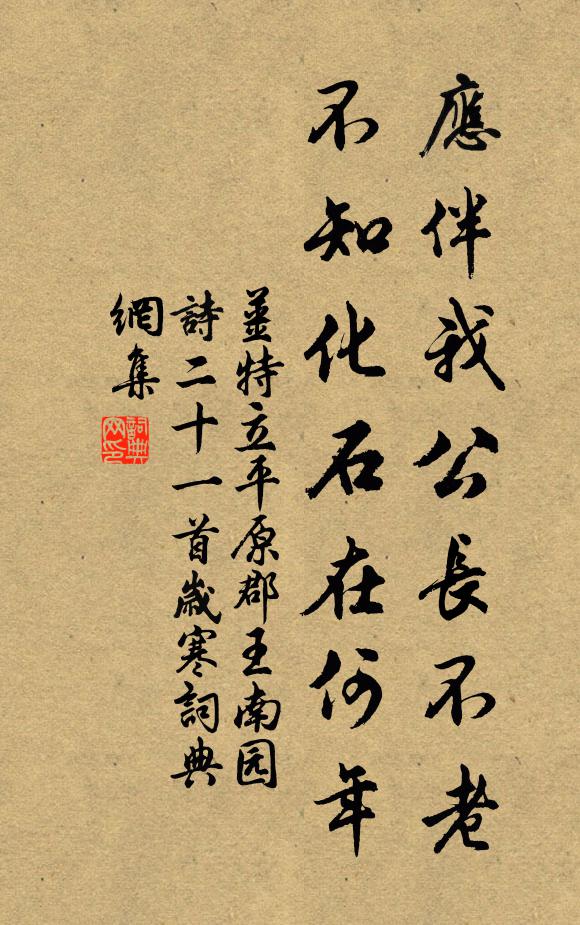 應伴我公長不老
不知化石在何年
薑特立平原郡王南园
詩二十一首歲寒詞典
網集
詞典
网印